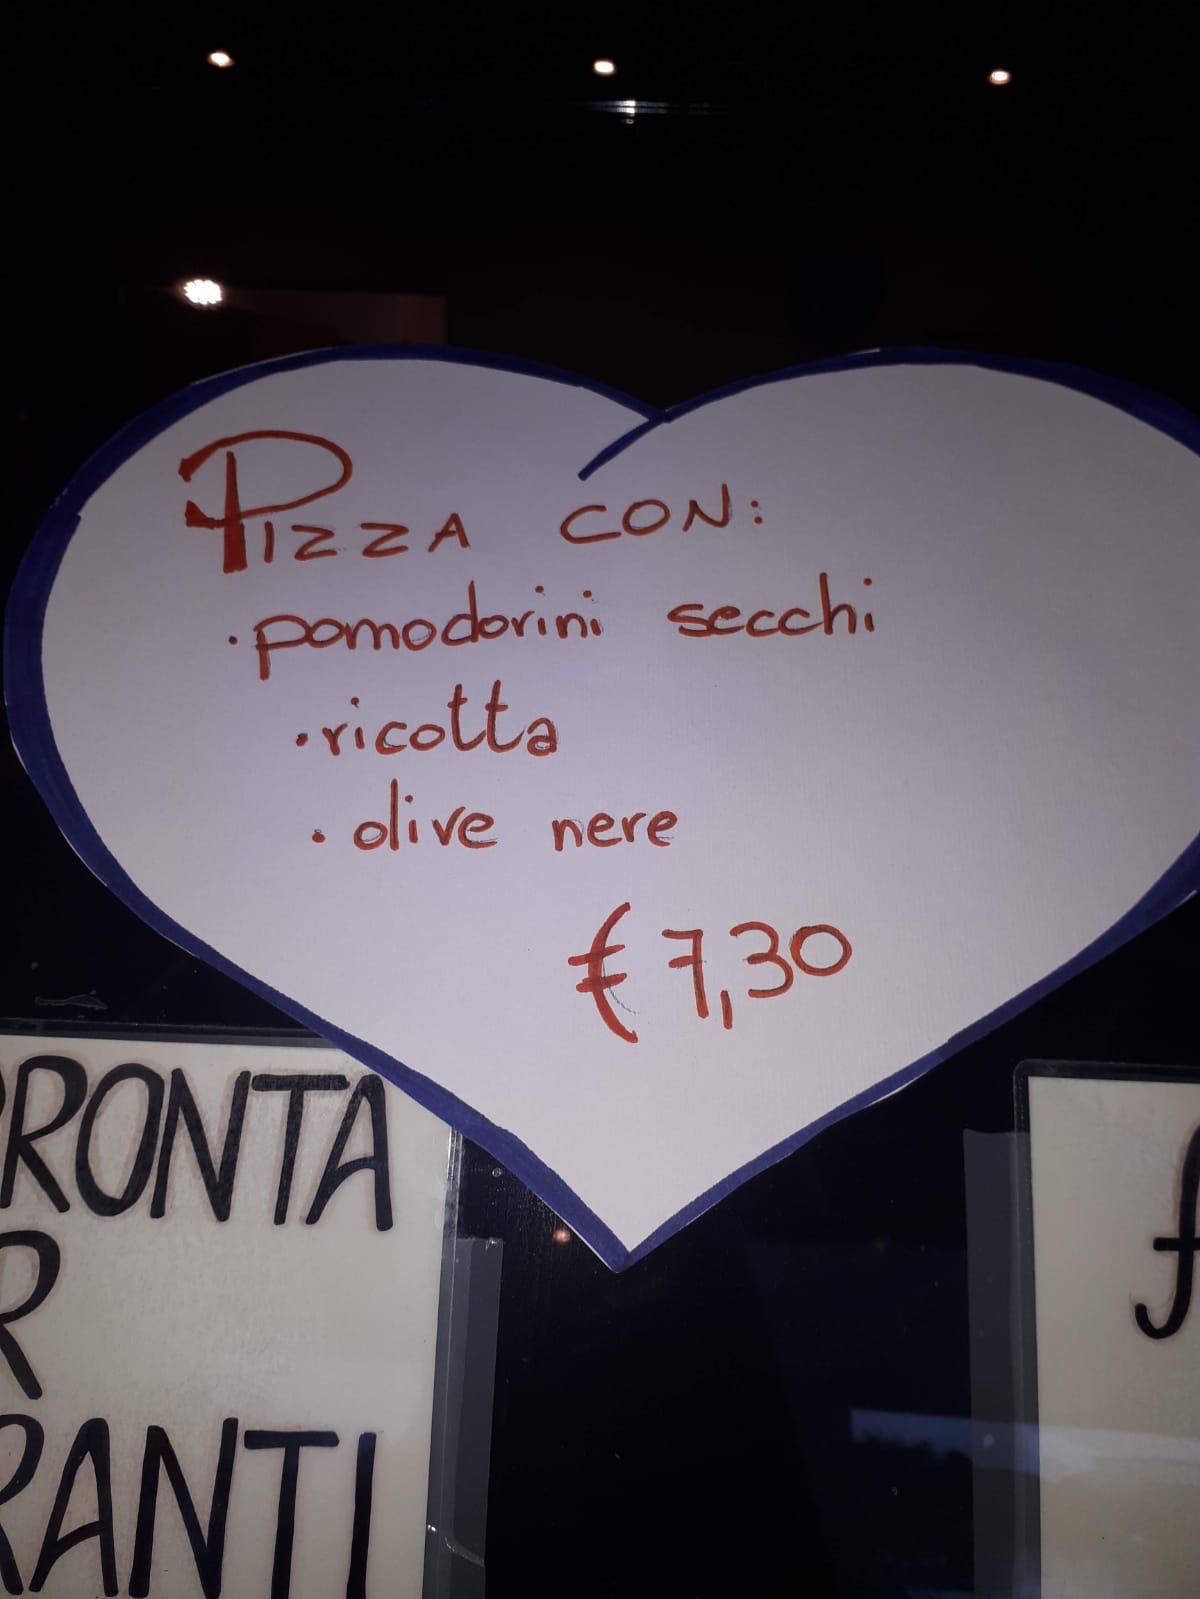 PIZZA CON:
· pomodorini secchi
· ricotta
· olive nere
€ 7,30
RONTA
R
RANTI